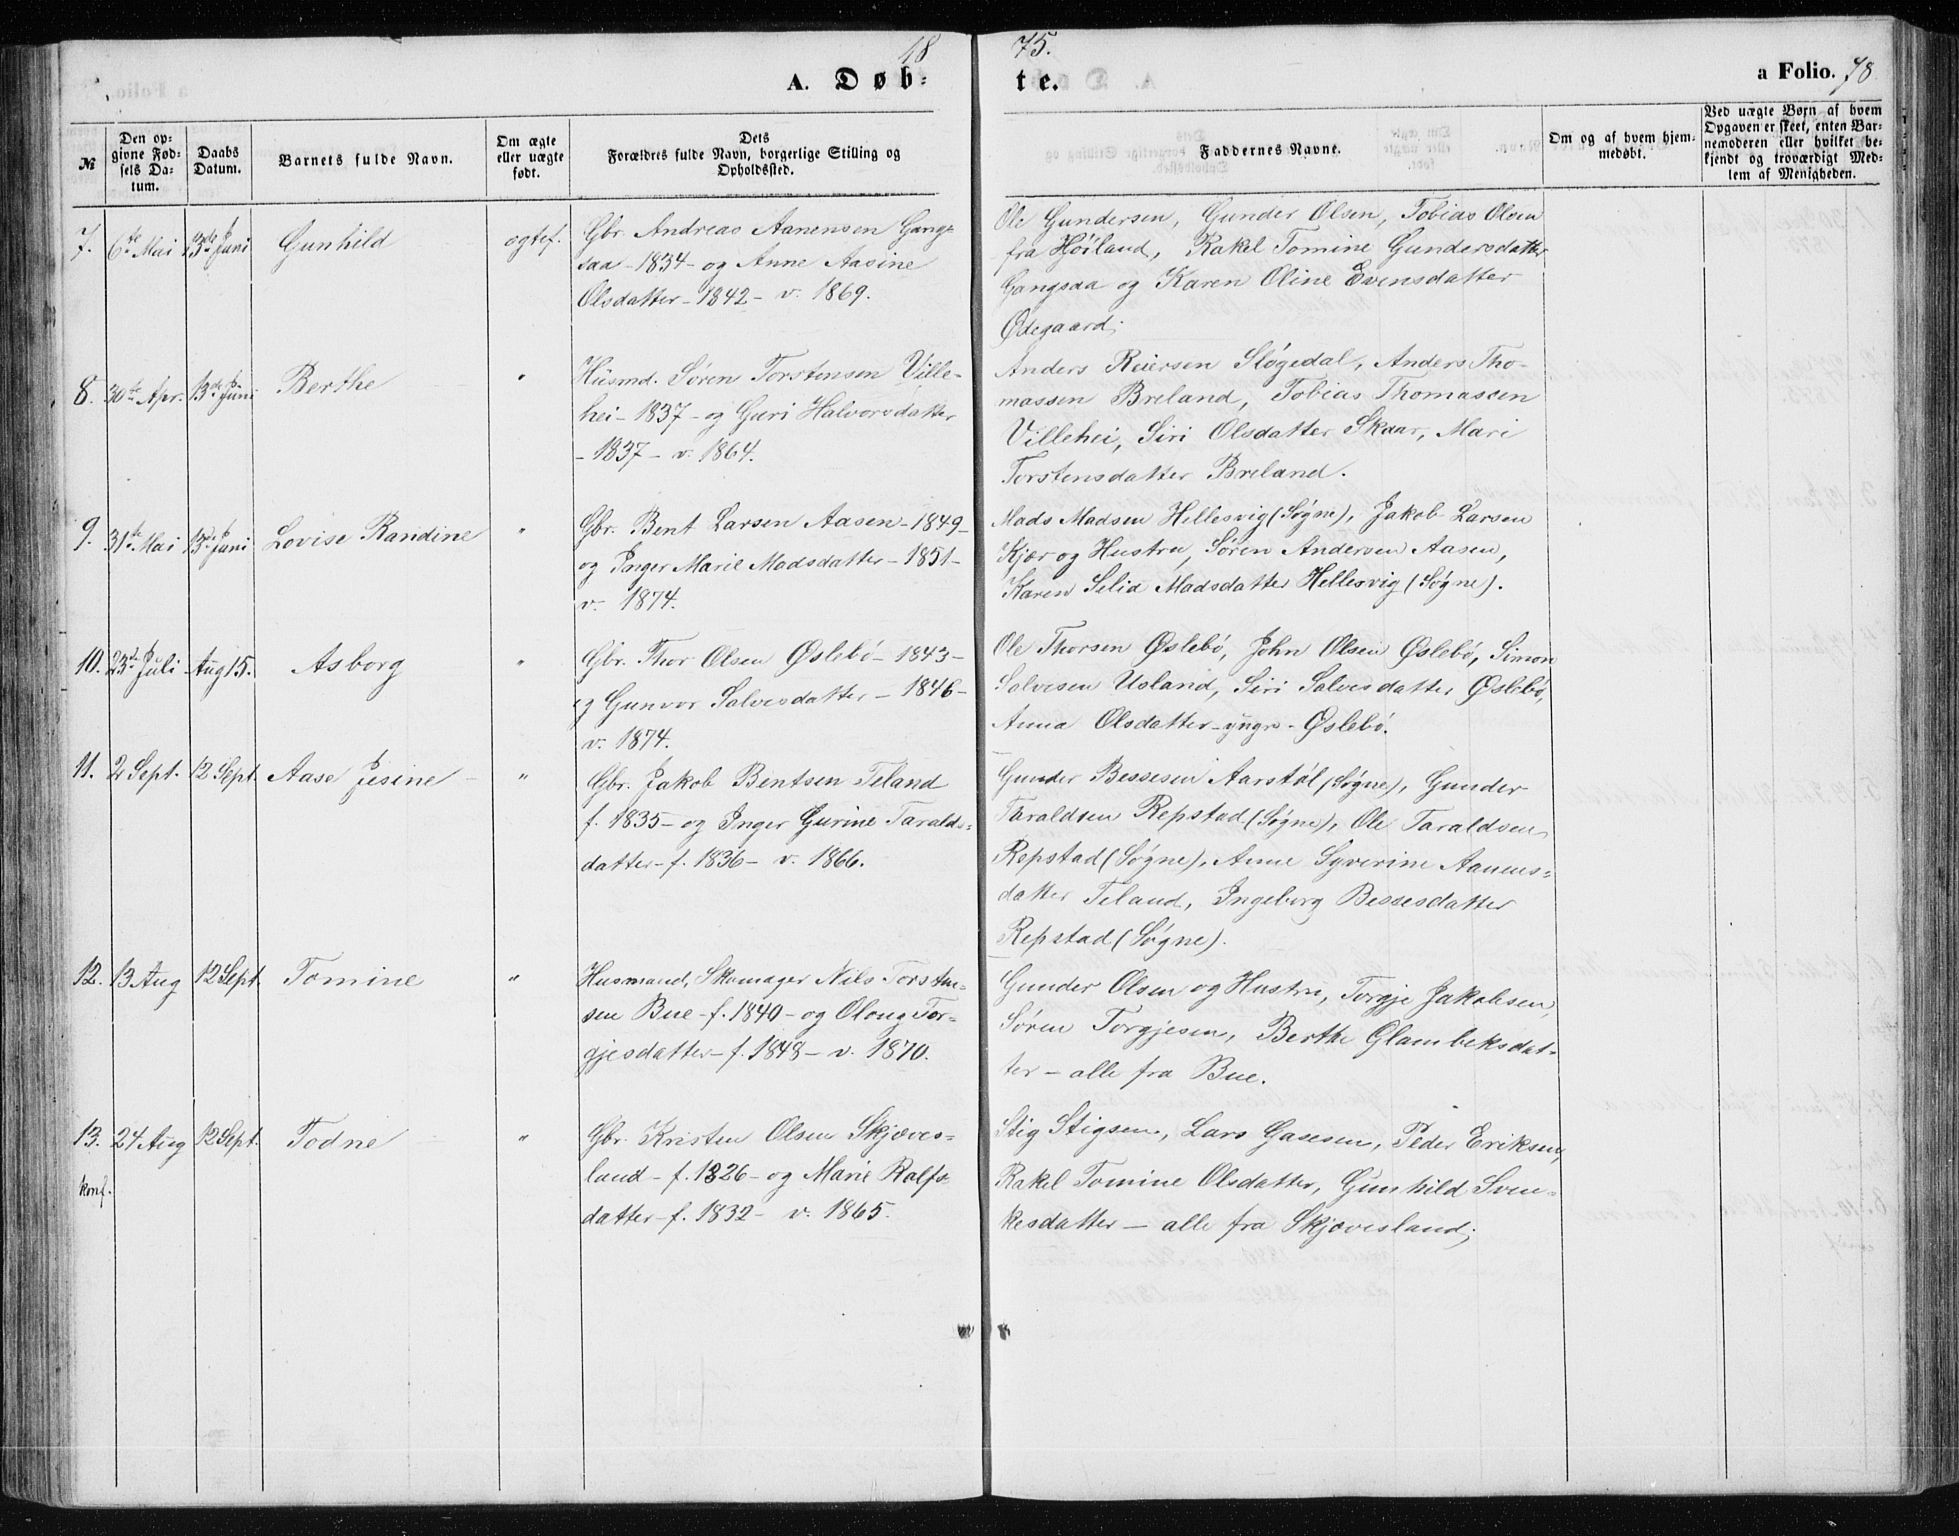 1875.
A. Døbte.
a Folio. 78
№
Den opgivne Fødsels Datum.
Daabs Datum.
Barnets fulde Navn.
Om ægte eller uægte født.
Dets Forældres fulde Navn, borgerlige Stilling og Opholdssted.
Faddernes Navne.
Om og af hvem hjemmedøbt.
Ved uægte Børn af hvem Opgaven er skeet, enten Barnemoderen eller hvilket bekjendt og troværdigt Medlem af Menigheden.
7. 6te Mai 13de Juni Gunhild ægtef.
Gbr. Andreas Aanensen Gang-
saa - 1834 - og Anne Aasine
Olsdatter - 1842 - v. 1869.
Ole Gundersen, Gunder Olsen, Tobias Olsen
fra Højland, Rakel Tomine Gundersdatter
Gangsaa og Karen Oline Evensdatter
Ødegaard;
8. 30te Apr. 13de Juni Berthe "
Husmd. Søren Torstensen Ville-
hei - 1837 - og Guri Halvorsdatter
- 1837 - v. 1864.
Anders Reiersen Sløgedal, Anders Tho-
massen Breland, Tobias Thomassen
Villehei, Siri Olsdatter Skaar, Mari
Torstensdatter Breland.
9. 31te Mai 13de Juni Lovise Randine "
Gbr. Bent Larsen Aasen - 1849 -
og Inger Marie Madsdatter - 1851 -
v. 1874.
Mads Madsen Hellesvig (Søgne), Jakob Larsen
Kjær og Hustru, Søren Andersen Aasen,
Karen Selia Madsdatter Hellesvig (Søgne).
10. 23de Juli Aug 15. Asborg "
Gbr. Thor Olsen Øslebø - 1843 -
og Gunvor Salvesdatter - 1846 -
v. 1874.
Ole Thorsen Øslebø, John Olsen Øslebø, Simon
Salvesen Usland, Siri Salvesdatter Øslebø,
Anna Olsdatter - yngre - Øslebø.
11. 2 Sept. 12 Sept. Aase Jesine "
Gbr. Jakob Bentsen Teland
f. 1835 - og Inger Gurine Taralds-
datter - f. 1836 - v. 1866.
Gunder Bessesen Aarstøl (Søgne), Gunder
Taraldsen Repstad (Søgne), Ole Taraldsen
Repstad (Søgne), Anne Syverine Aanens-
datter Teland, Ingeborg Bessesdatter
Repstad (Søgne).
12. 13 Aug 12 Sept. Tomine "
Husmand, Skomager Nils Torsten-
sen Bue - f. 1840 - og Oloug Tor-
gjesdatter - f. 1848 - v. 1870.
Gunder Olsen og Hustru, Torgje Jakobsen,
Søren Torgjesen, Berthe Glambeksdat-
ter - alle fra Bue.
13. 24 Aug 12 Sept. Todne "
konf.
Gbr. Kristen Olsen Skjæves-
land - f. 1826 - og Marie Rolfs-
datter - f. 1832 - v. 1865.
Stig Stigsen, Lars Gasesen, Peder Eriksen,
Rakel Tomine Olsdatter, Gunhild Sven-
kesdatter - alle fra Skjævesland;